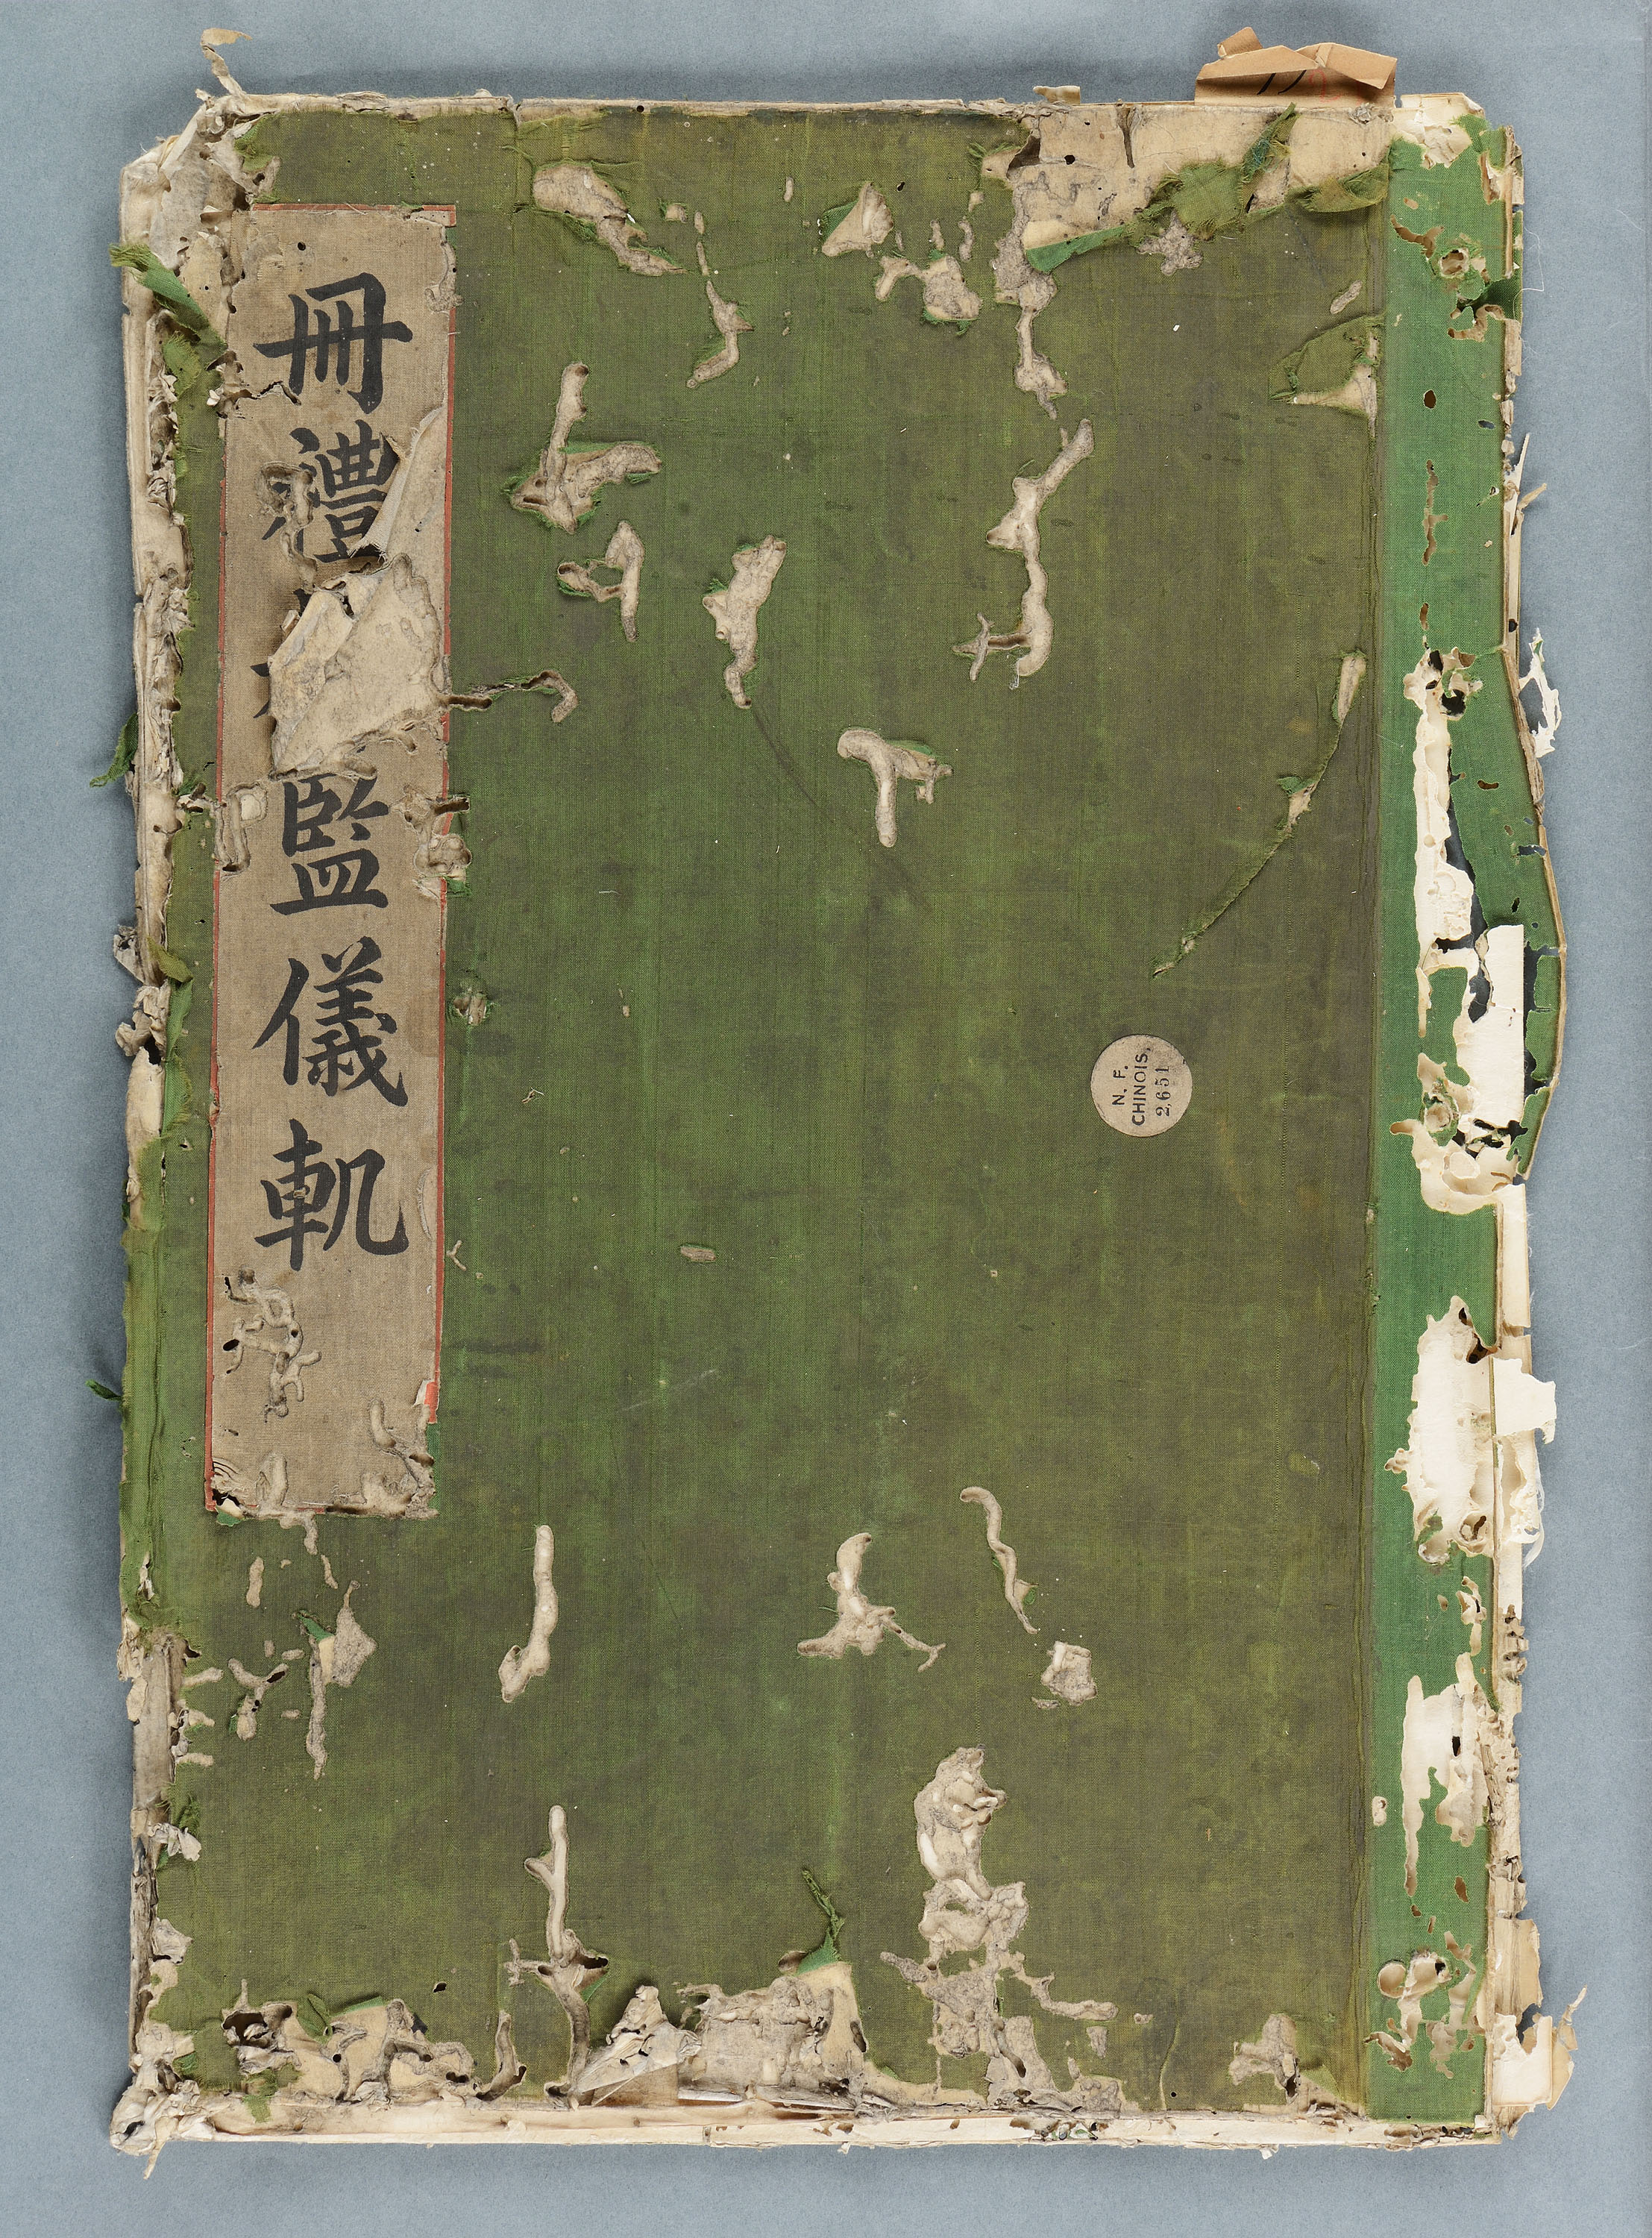 冊禮監儀軌
N. F.
CHINOIS.
2,651